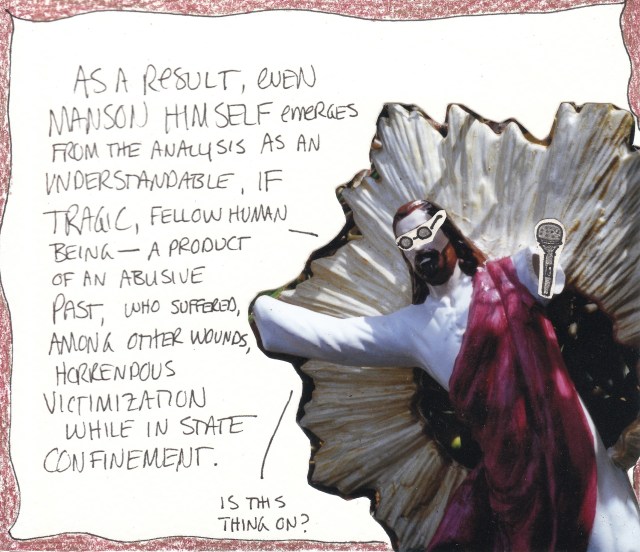 AS A RESULT, EVEN
MANSON HIMSELF EMERGES
FROM THE ANALYSIS AS AN
UNDERSTANDABLE, IF
TRAGIC, FELLOW HUMAN
BEING — A PRODUCT
OF AN ABUSIVE
PAST, WHO SUFFERED,
AMONG OTHER WOUNDS,
HORRENDOUS
VICTIMIZATION
WHILE IN STATE
CONFINEMENT.
IS THIS
THING ON?